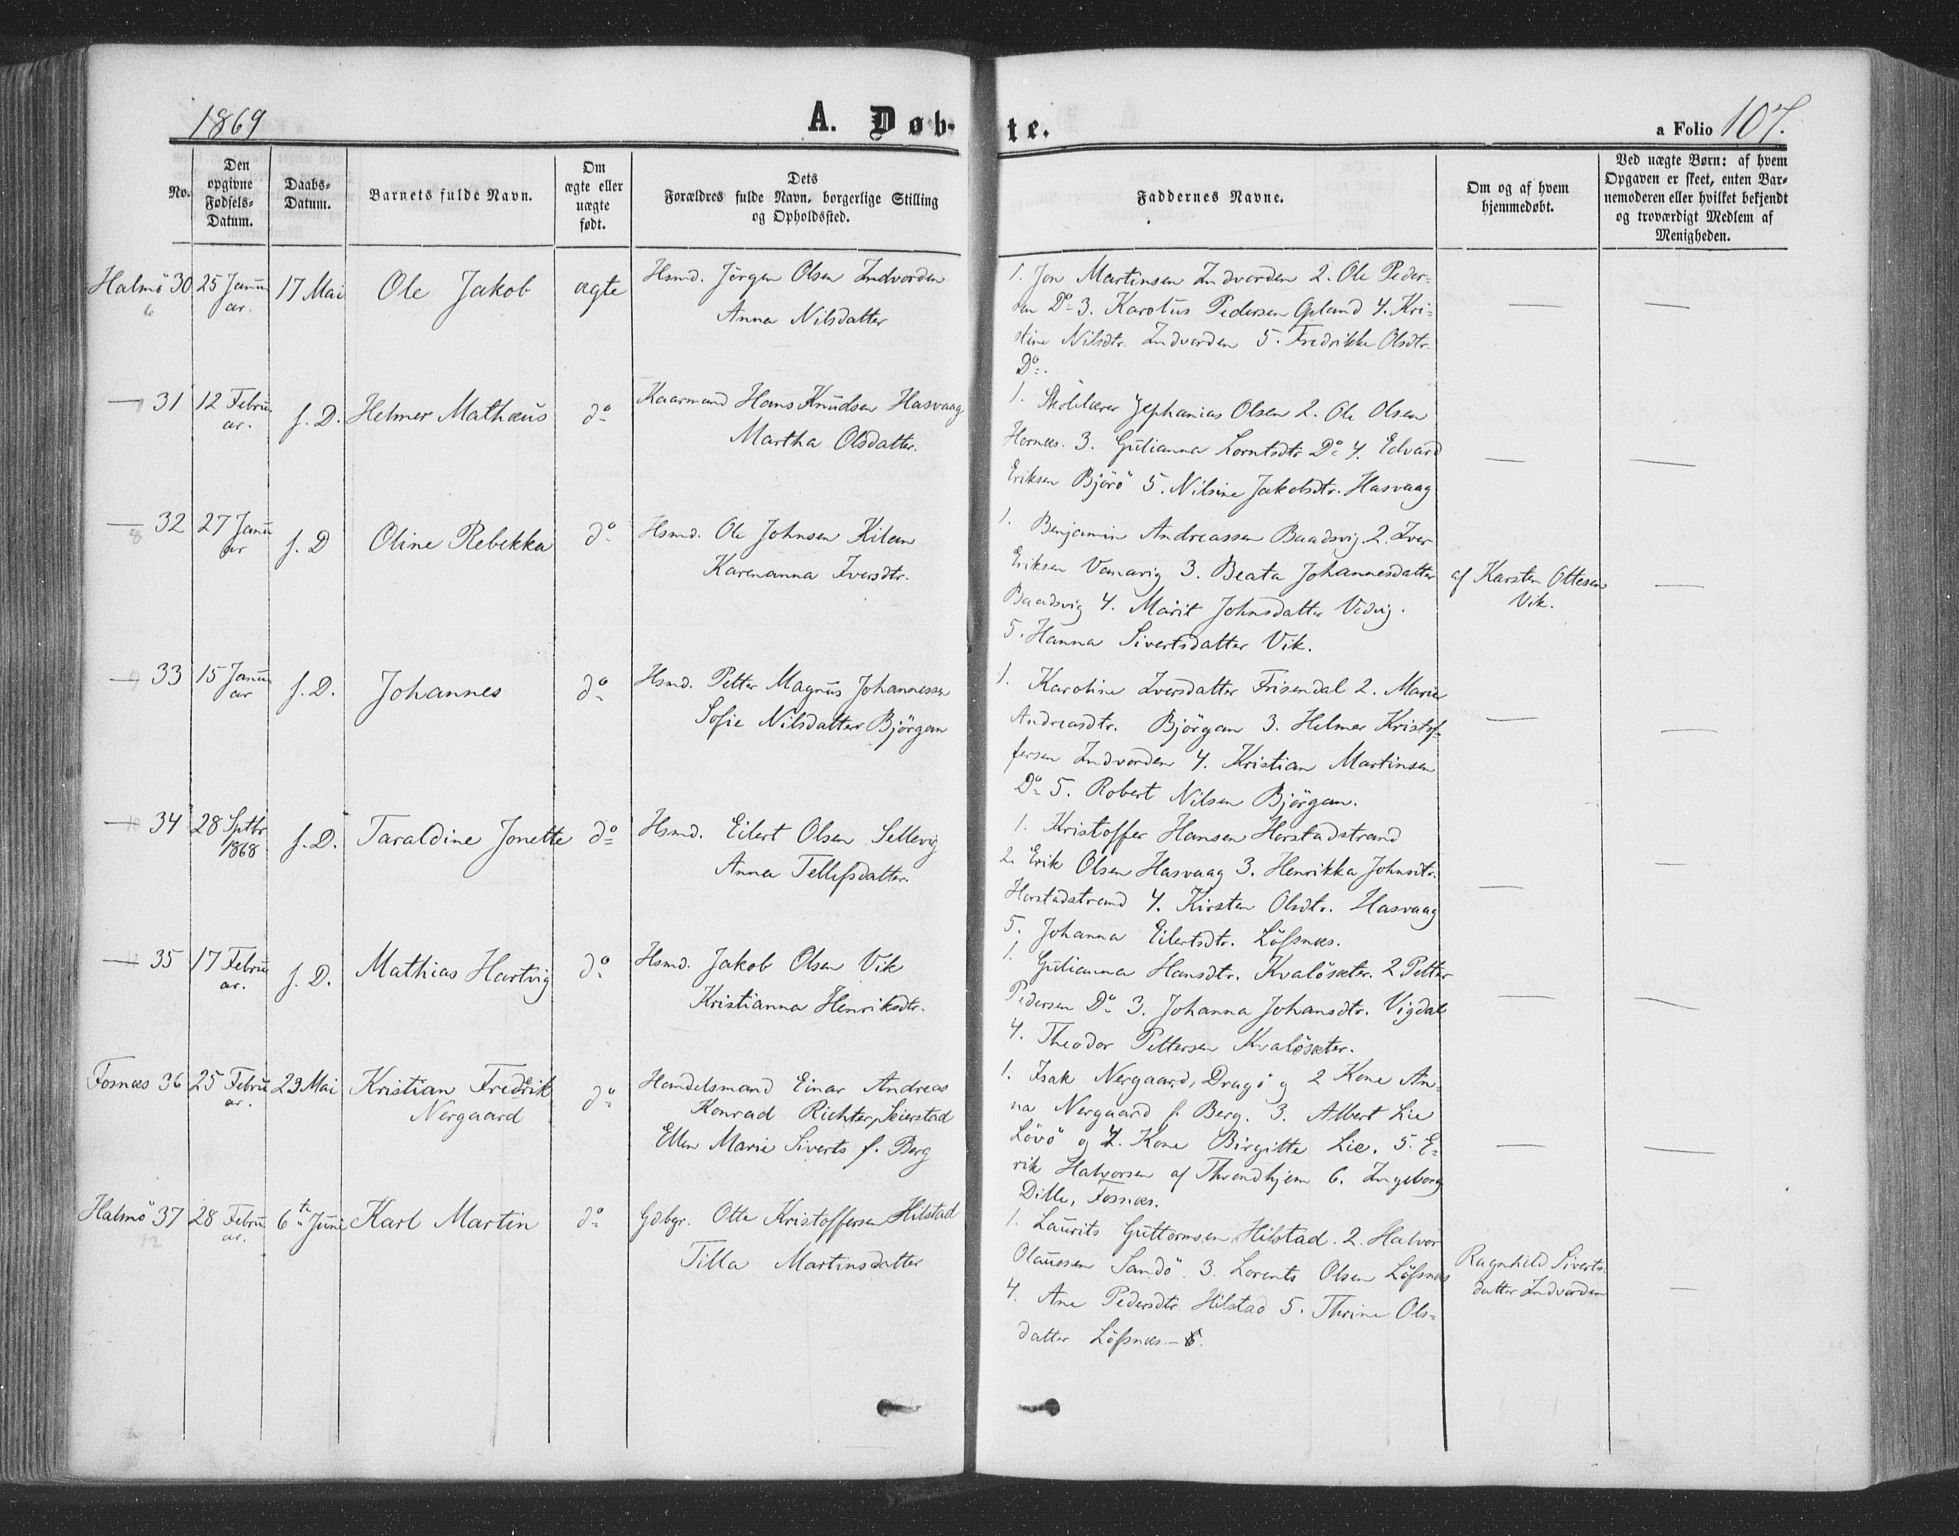 1869
A. Døb-
te.
a Folio 107.
No.
Den opgivne Fødsels-Datum.
Daabs-Datum.
Barnets fulde Navn.
Om ægte eller uægte født.
Dets Forældres fulde Navn, borgerlige Stilling og Opholdssted.
Faddernes Navne.
Om og af hvem hjemmedøbt.
Ved uægte Børn: af hvem Opgaven er skeet, enten Barnemoderen eller hvilket bekjendt og troværdigt Medlem af Menigheden.
Halmö 30 25 Janu 17 Mai Ole Jakob ægte Hsmd. Jörgen Olsen Indvorden
6 ar. Anna Nilsdatter
1. Jon Martinsen Indvorden 2. Ole Peder-
sen Do 3. Karolus Pedersen Opland 4. Kri-
stine Nilsdtr. Indvorden 5. Fredrikke Olsdtr.
Do.
— 31 12 Febru f. D. Helmer Mathæus do Kaarmand Hans Knudsen Hasvaag
7 ar. Martha Olsdatter.
1. Skolelærer Zephanias Olsen 2. Ole Olsen
Hornes. 3. Gulianna Lorntsdtr Do 4. Edvard
Eriksen Björö 5. Nilsine Jakobsdtr. Hasvaag
— 32 27 Janu f. D Oline Rebekka do Hsmd. Ole Johnsen Kilen
8 ar Karenanna Iversdtr.
1. Benjamin Andreassen Baadsvig. 2. Iver
Eriksen Vanavig 3. Beata Johannesdatter
Baadsvig 4. Marit Johnsdatter Vedvig.
5. Hanna Sivertsdatter Vik.
af Karsten Ottesen
Vik.
— 33 15 Janu f. D. Johannes do Hsmd. Petter Magnus Johannessen
9 ar Sofie Nilsdatter Björgan
1. Karoline Iversdatter Frisendal 2. Marie
Andreasdtr. Björgan 3. Helmer Kristof-
fersen Indvorden 4. Kristian Martinsen
Do 5. Robert Nilsen Björgan.
— 34 28 Sptbr f. D. Taraldine Jonette do Hsmd. Eilert Olsen Sellevig
10 1868 Anna Tellefsdatter.
1. Kristoffer Hansen Horstadstrand
2. Erik Olsen Hasvaag 3. Henrikka Johnsdtr.
Horstadstrand 4. Kirsten Olsdtr. Hasvaag
5. Johanna Eilertsdtr. Löfsnæs.
— 35 17 Febru f. D. Mathias Hartvig do Hsmd. Jakob Olsen Vik
11 ar. Kristianna Henriksdtr.
1. Gulianna Hansdtr. Kvalösæter. 2 Petter
Pedersen Do 3. Johanna Johansdtr. Vigdal
4. Theodor Pettersen Kvalösæter.
Fosnæs 36 25 Febru 23 Mai Kristian Fredrik do Handelsmand Einar Andreas
ar. Nergaard Konrad Richter, Seierstad
Ellen Marie Siverts f. Berg
1. Isak Nergaard, Dragö og 2 Kone An-
na Nergaard f. Berg. 3. Albert Lie
Lövö og 4. Kone Birgitte Lie. 5. E-
rik Halvorsen af Throndhjem 6. Ingeborg
Dille, Fosnæs.
Halmö 37 28 Febru 6te Juni Karl Martin do Gdbgr. Otte Kristoffersen Hilstad
12 ar. Tilla Martinsdatter
1. Laurits Guttormsen Hilstad. 2. Halvor
Olaussen Sandö. 3. Lorents Olsen Löfsnæs
4. Ane Pedersdtr. Hilstad 5. Thrine Ols-
datter Löfsnæs. —
Ragnhild Siverts-
datter Indvorden